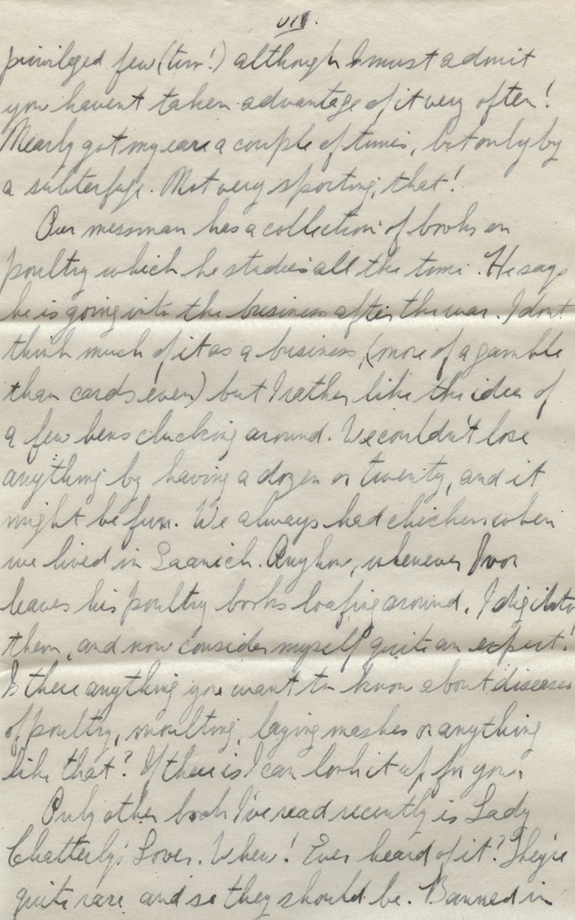 VII.
privileged few (two!) although I must admit
you haven't taken advantage of it very often!
Nearly got my ears a couple of times, but only by
a subterfuge. Not very sporting, that!
Our messman has a collection of books on
poultry which he studies all the time. He says
he is going into the business after the war. I don't
think much of it as a business, (more of a gamble
than cards even) but I rather like the idea of
a few hens clucking around. We couldn't lose
anything by having a dozen or twenty, and it
might be fun. We always had chickens when
we lived in Saanich. Anyhow, whenever Ivor
leaves his poultry books loafing around, I dig into
them, and now consider myself quite an expert!
Is there anything you want to know about diseases
of poultry, moulting, laying mashes or anything
like that? If there is I can look it up for you.
Only other book I've read recently is Lady
Chatterly's Lover. Whew! Ever heard of it? They're
quite rare and so they should be. Banned in